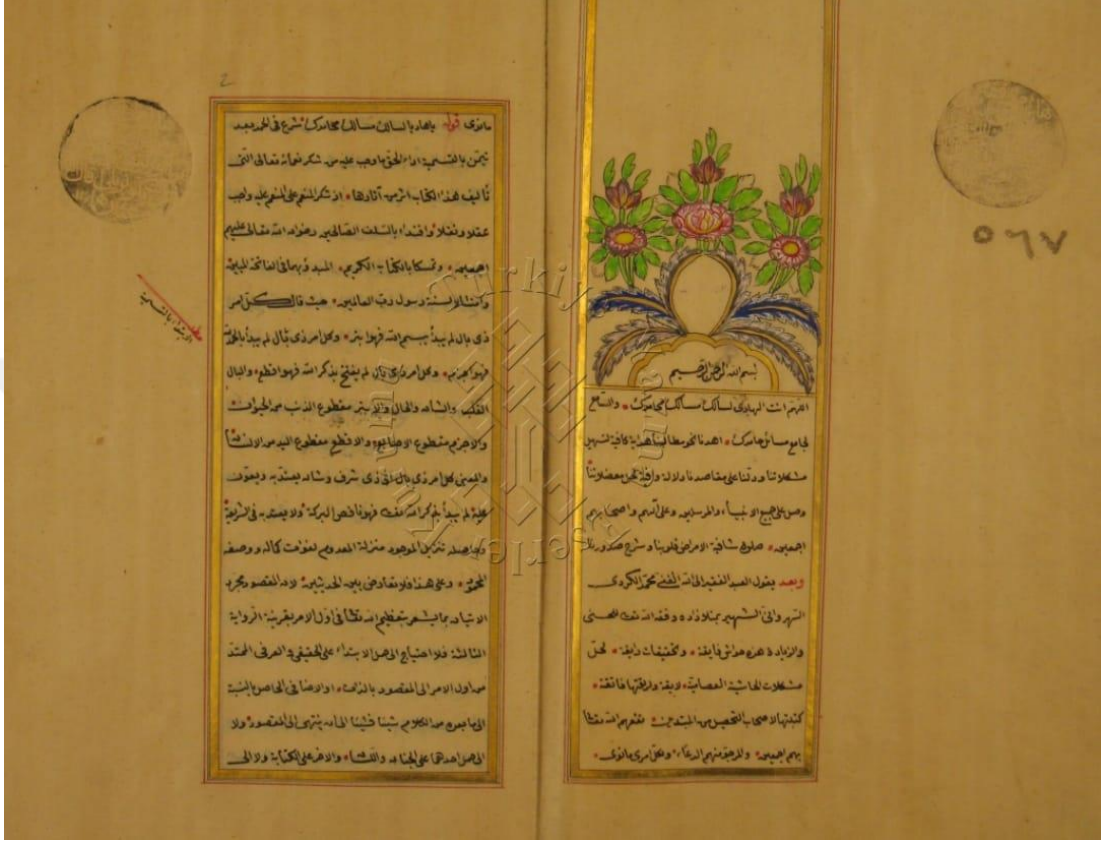 بسم الله الرحمن الرحيم
اللهم انت الهادى لسالك مسالك محامدك والسامع
لجامع مسائل حامدك اهدنا نحو مطالبنا هداية كافية لتسهيل
مشكلاتنا ودلنا على مقاصدنا دلالة وافية لحل معضلاتنا
وصل على جميع الانبياء والمرسلين وعلى آلهم واصحابهم
اجمعين صلوة شافية لامراض قلوبنا وشرح صدورنا
وبعد يقول العبد الفقير الى الله الغنى محمد الكردى
النهروانى الشهير بمنلا زاده وفقه الله تعالى للحسنى
والزيادة هذه حواش فايقة وتحقيقات لحل
مشكلات الحاشية العصامية لايقة
كتبتها لاصحاب التحصيل من المبتدئين نفعهم الله تعالى
بهم اجمعين والمرجو منهم الدعاء ولكل امرئ مانوى
2
مانوى قوله يا هاديا لسالك مسالك محامدك شرع فى الحمد بعد
تيمن بالتسمية اداء لحق ما وجب عليه من شكر نعمائه تعالى التى
تأليف هذا الكتاب اثر من آثارها اذ شكر المنعم على المنعم عليه واجب
عقلا ونقلا واقتداء بالسلف الصالحين رضوان الله تعالى عليهم
اجمعين وتمسكا بالكتاب الكريم المبدؤ بهما فى الفاتحة
وامتثالا لسنة رسول رب العالمين حيث قال كل امر
ذى بال لم يبدأ ببسم الله فهو ابتر وكل امر ذى بال لم يبدأ بالحمد لله
فهو اجزم وكل امر ذى بال لم يفتح بذكر الله فهو اقطع والبال
القلب والشان والحال والابتر مقطوع الذنب من الحيوانات
والاجزم مقطوع الاصابع والاقطع مقطوع اليد من الانسان
والمعنى كل امر ذى بال اى ذى شرف وشان يعتد به
عليه لم يبدأ بذكر الله تعالى فهو ناقص البركة ولا يعتد به فى الشريعة
وحاصله تنزيل الموجود منزلة المعدوم لفوات كماله ووصفه
وعلى هذا فلا تعارض بين الحديثين لان المقصود مجرد
الاتيان بما يشعر بتعظيم الله تعالى فى اول الامر بقرينة الرواية
الثالثة فلا احتياج الى حمل الابتداء على الحقيقى والعرفى الممتد
من اول الامر الى المقصود بالذات والاضافى الحاصل بالنسبة
الى ما بعده من الكلام شيئا فشيئا الى ان ينتهى الى المقصود ولا
الى حمل احدهما على الجنان واللسان والاخر على الكتابة ولا الى
٥٦٧